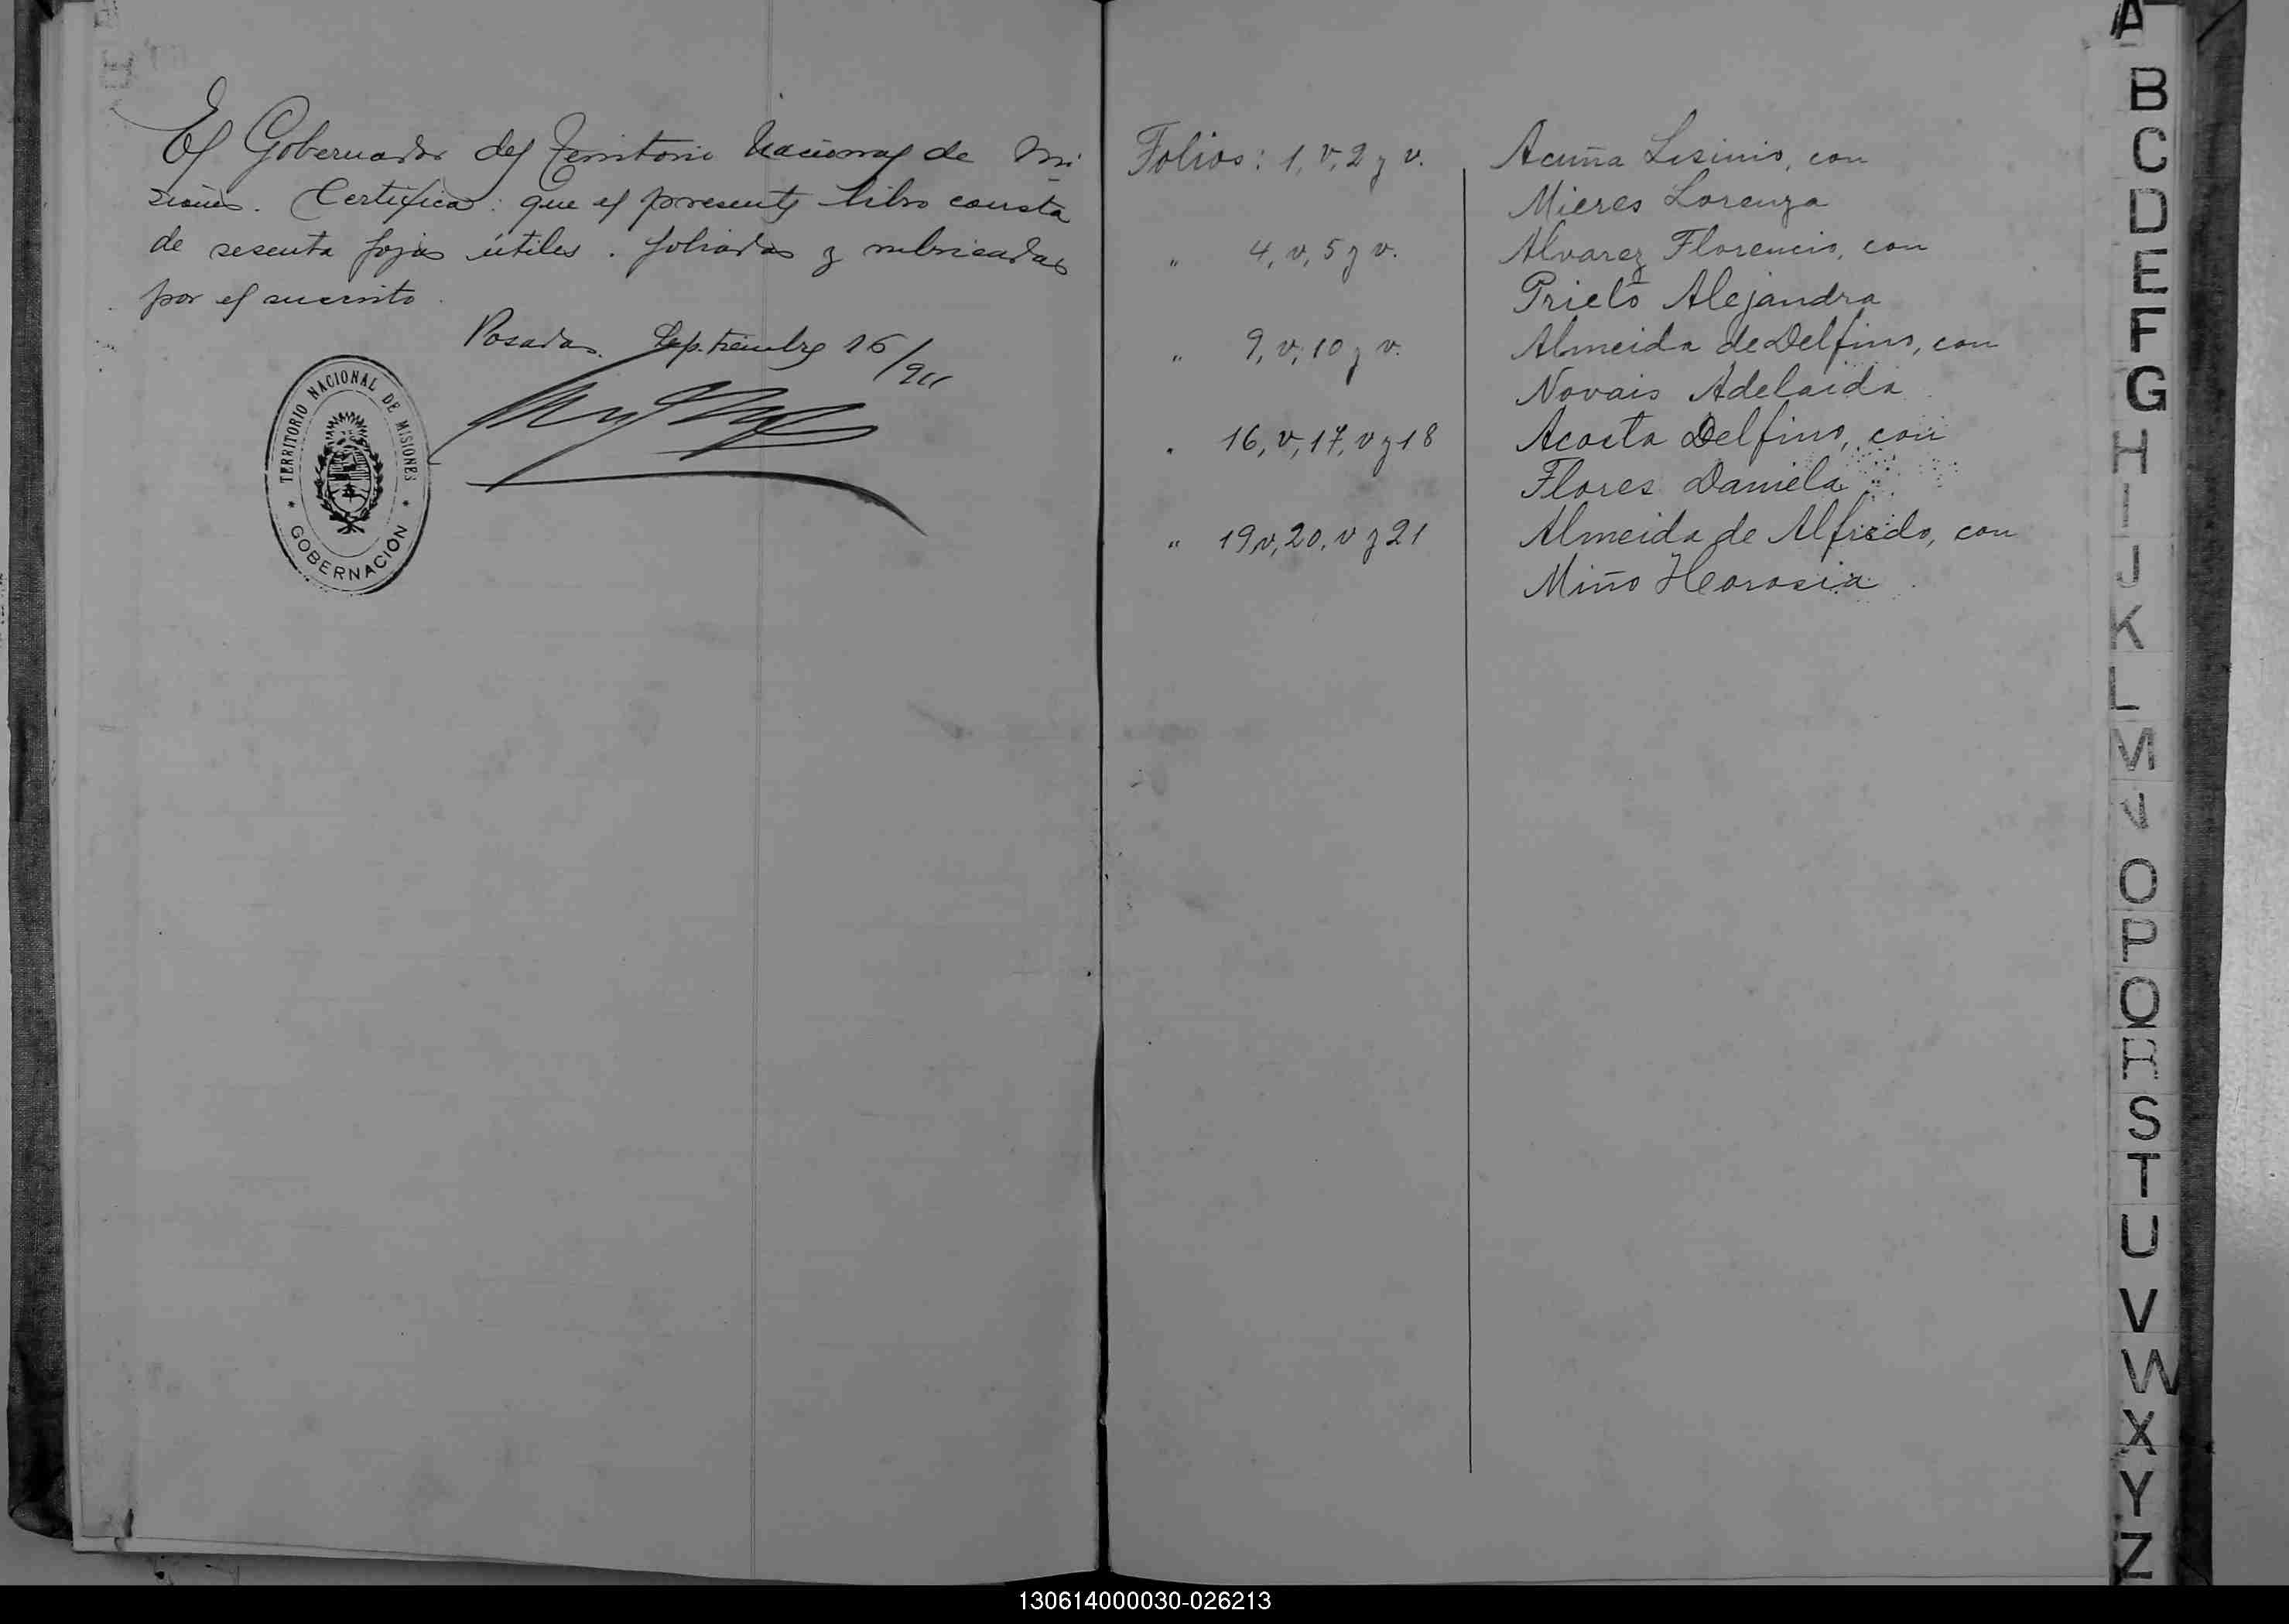 El Gobernador del Territorio Nacional de Mi-
siones. Certifica: que el presente libro consta
de sesenta fojas útiles. foliadas y rubricadas
por el suscrito.
Posadas. Septiembre 16/911
TERRITORIO NACIONAL DE MISIONES
* GOBERNACIÓN *
Folios: 1, v, 2 y v. Acuña Lisinio, con
Mieres Lorenza
" 4, v, 5 y v. Alvarez Florencio, con
Prieto Alejandra
" 9, v, 10 y v. Almeida de Delfino, con
Novais Adelaida
" 16, v, 17, v y 18 Acosta Delfino, con
Flores Daniela
" 19 v, 20, v y 21 Almeida de Alfredo, con
Miño
A
B
C
D
E
F
G
H
I
J
K
L
M
N
O
P
Q
R
S
T
U
V
W
X
Y
Z
130614000030-026213